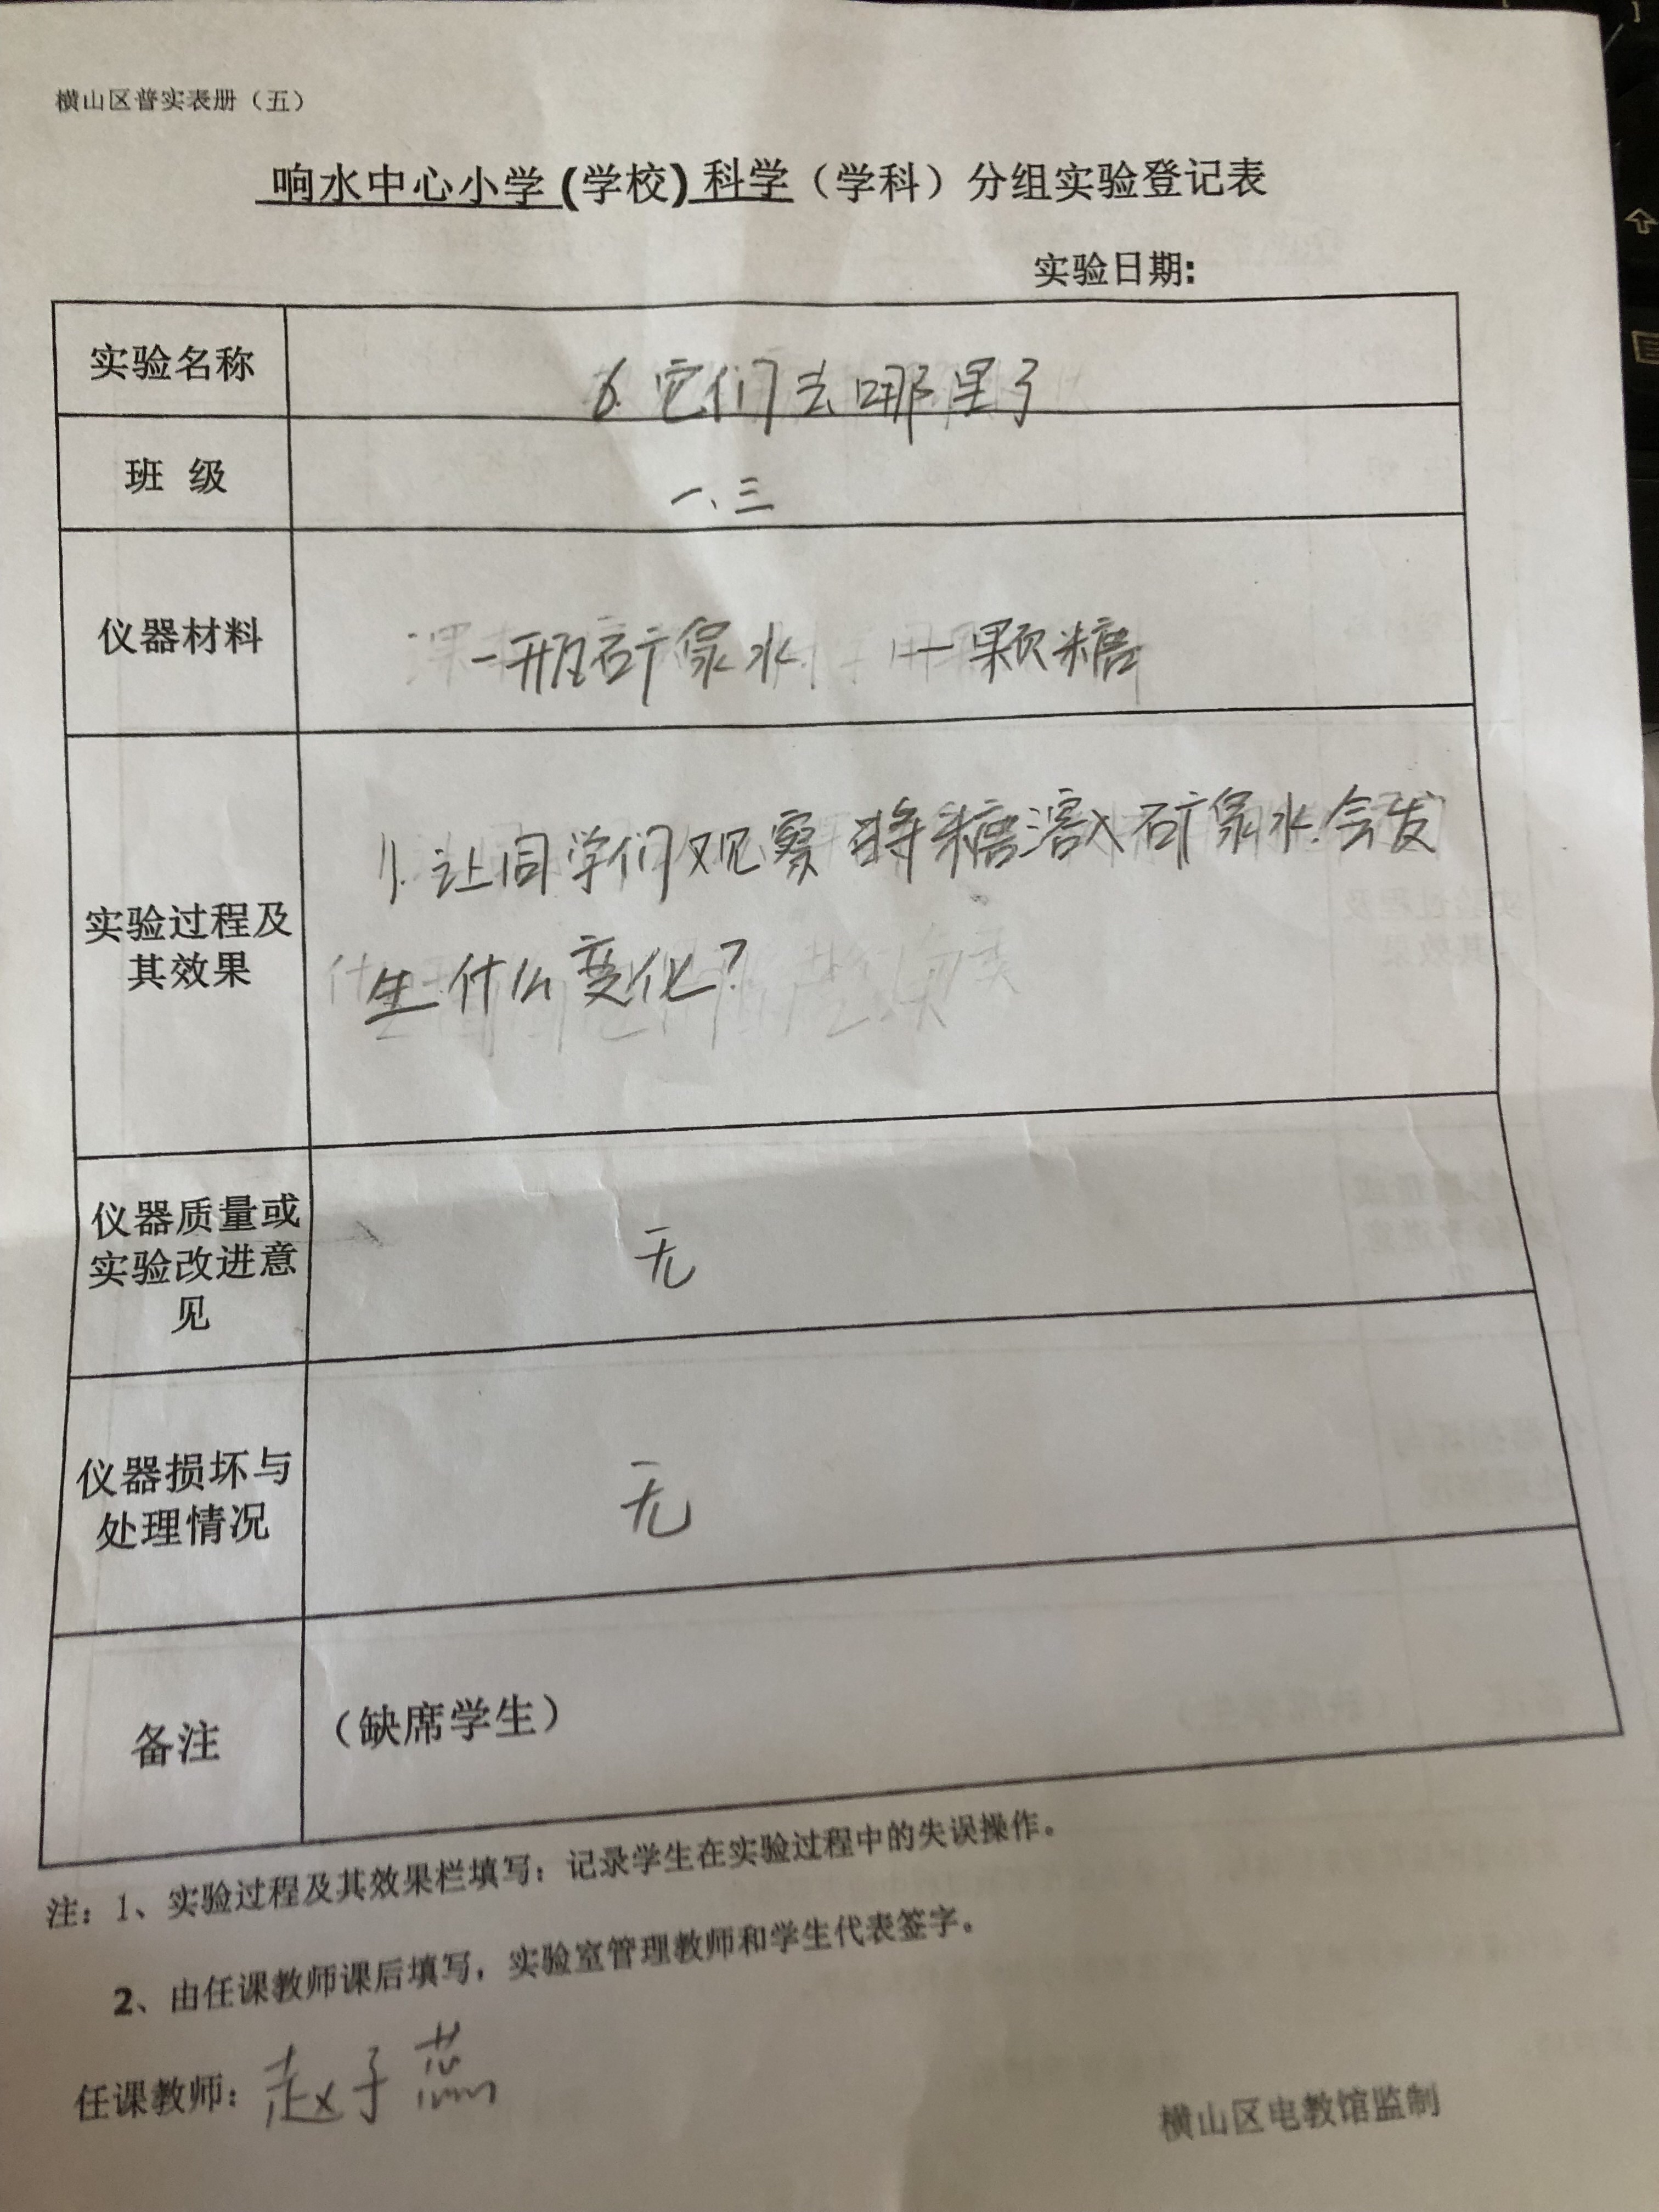 横山区普实表册（五）
响水中心小学(学校)科学（学科）分组实验登记表
实验日期:
实验名称
6.它们去哪里了
班 级
一、三
仪器材料
一瓶矿泉水 一颗糖
实验过程及
其效果
1.让同学们观察将糖溶入矿泉水会发
生什么变化？
仪器质量或
实验改进意
见
无
仪器损坏与
处理情况
无
备注
（缺席学生）
注：1、实验过程及其效果栏填写：记录学生在实验过程中的失误操作。
2、由任课教师课后填写，实验室管理教师和学生代表签字。
任课教师：赵子蕊
横山区电教馆监制